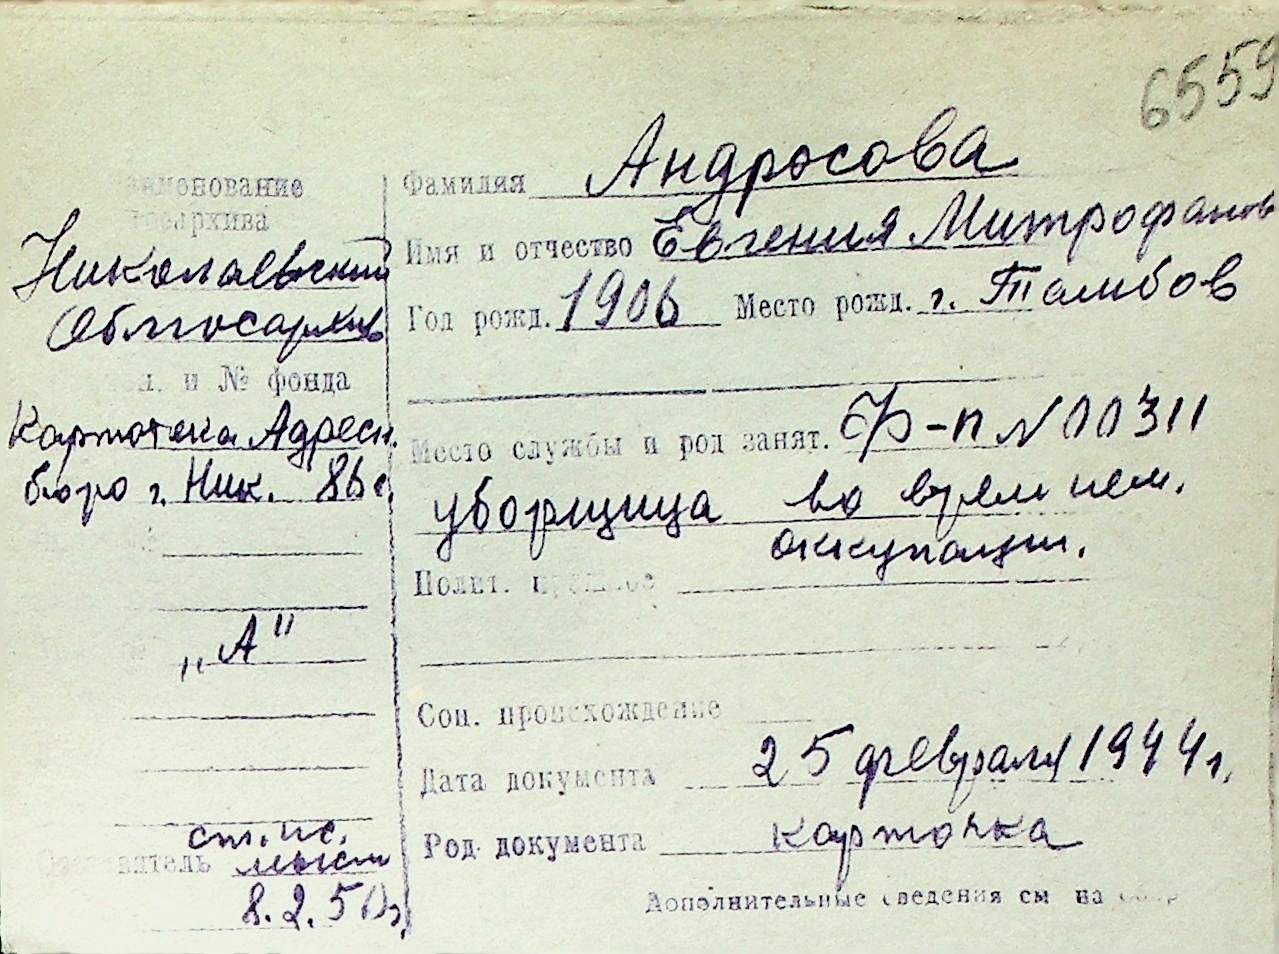 6559
Наименование
Госархива
Николаевский
Облгосархив
и № фонда
Картотека Адресн.
бюро г. Ник.
„А"
ст. ис.
Составитель
8.2.50г.
Фамилия Андросова
Имя и отчество Евгения Митрофанов
Год рожд. 1906 Место рожд. г. Тамбов
Место службы и род занят. Ф-п N 00311
уборщица во врем нем.
оккупации.
Полит. прошлое
Соц. происхождение
Дата документа 25 февраля 1944 г.
Род документа карточка
Дополнительные сведения см на